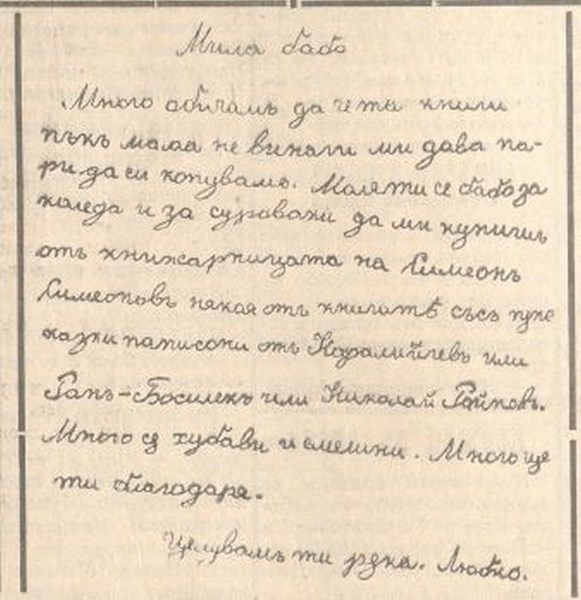 Мила бабо
Много обичамъ да чета книги
пъкъ мама не винаги ми дава па-
ри да си копувамъ. Моля ти се бабо за
коледа и за сурваки да ми купишъ
отъ книжарницата на Симеонъ
Симеоновъ някоя отъ книгитѣ съсъ
казки написани отъ Каралийчевъ или
Ранъ-Босилекъ или Николай Райновъ.
Много сѫ хубави и смешни. Много ще
ти благодаря.
Целувамъ ти рѫка. Любчо.